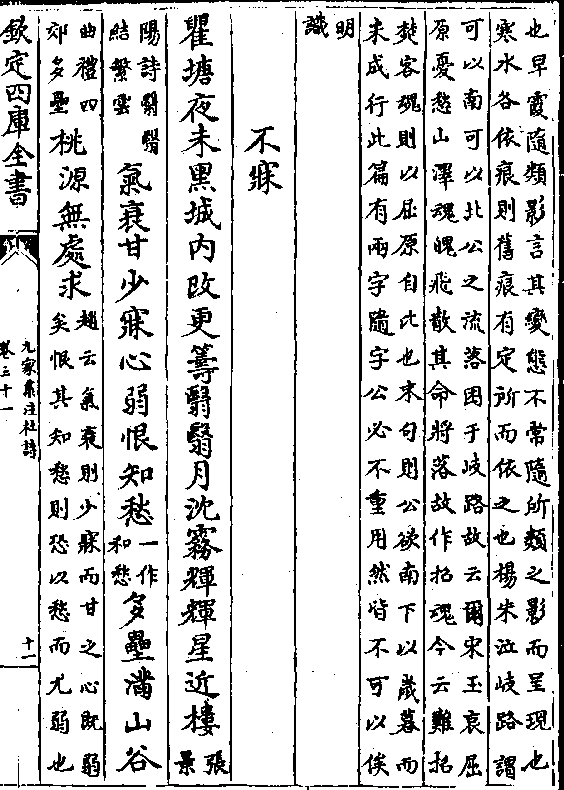 也早霞隨類影言其變態不常隨所類之影而呈現也
寒水各依痕則舊痕有定所而依之也楊朱泣岐路謂
可以南可以北公之流落困于岐路故云爾宋玉哀屈
原憂愁山澤魂魄飛散其命將落故作招魂今云難招
楚客魂則以屈原自比也末句則公欲南下以歲暮而
未成行此篇有兩字隨字公必不重用然皆不可以俟
明
識
不寐
瞿塘夜未黑城内改更籌翳翳月沈霧輝輝星近樓張景
陽詩翳翳結繁雲氣衰甘少寐心弱恨知愁一作和愁多壘滿山谷
曲禮四郊多壘桃源無處求趙云氣衰則少寐而甘之心既弱矣恨其知愁則恐以愁而尤弱也
欽定四庫全書
九家集注杜詩
卷三十一
十一